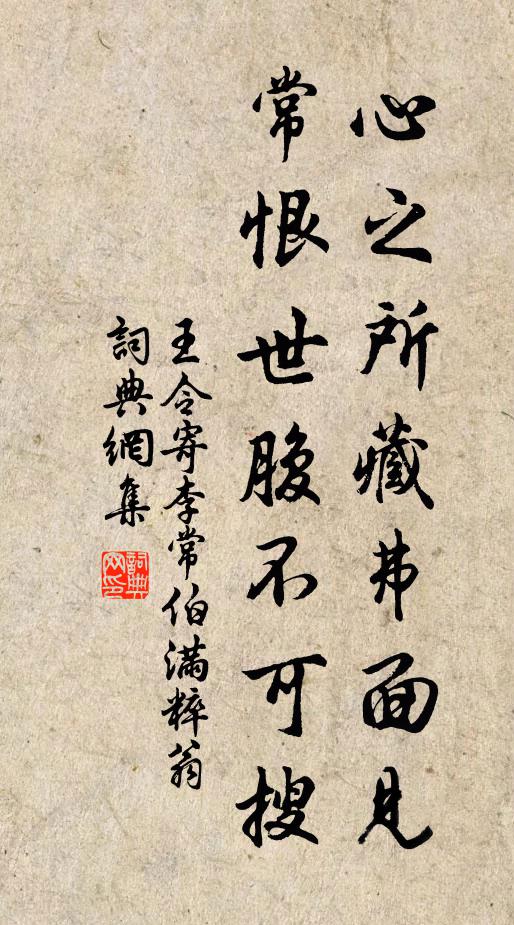 心之所藏弗面見
常恨世腹不可搜
王令寄李常伯滿粹翁
詞典網集
詞典網印